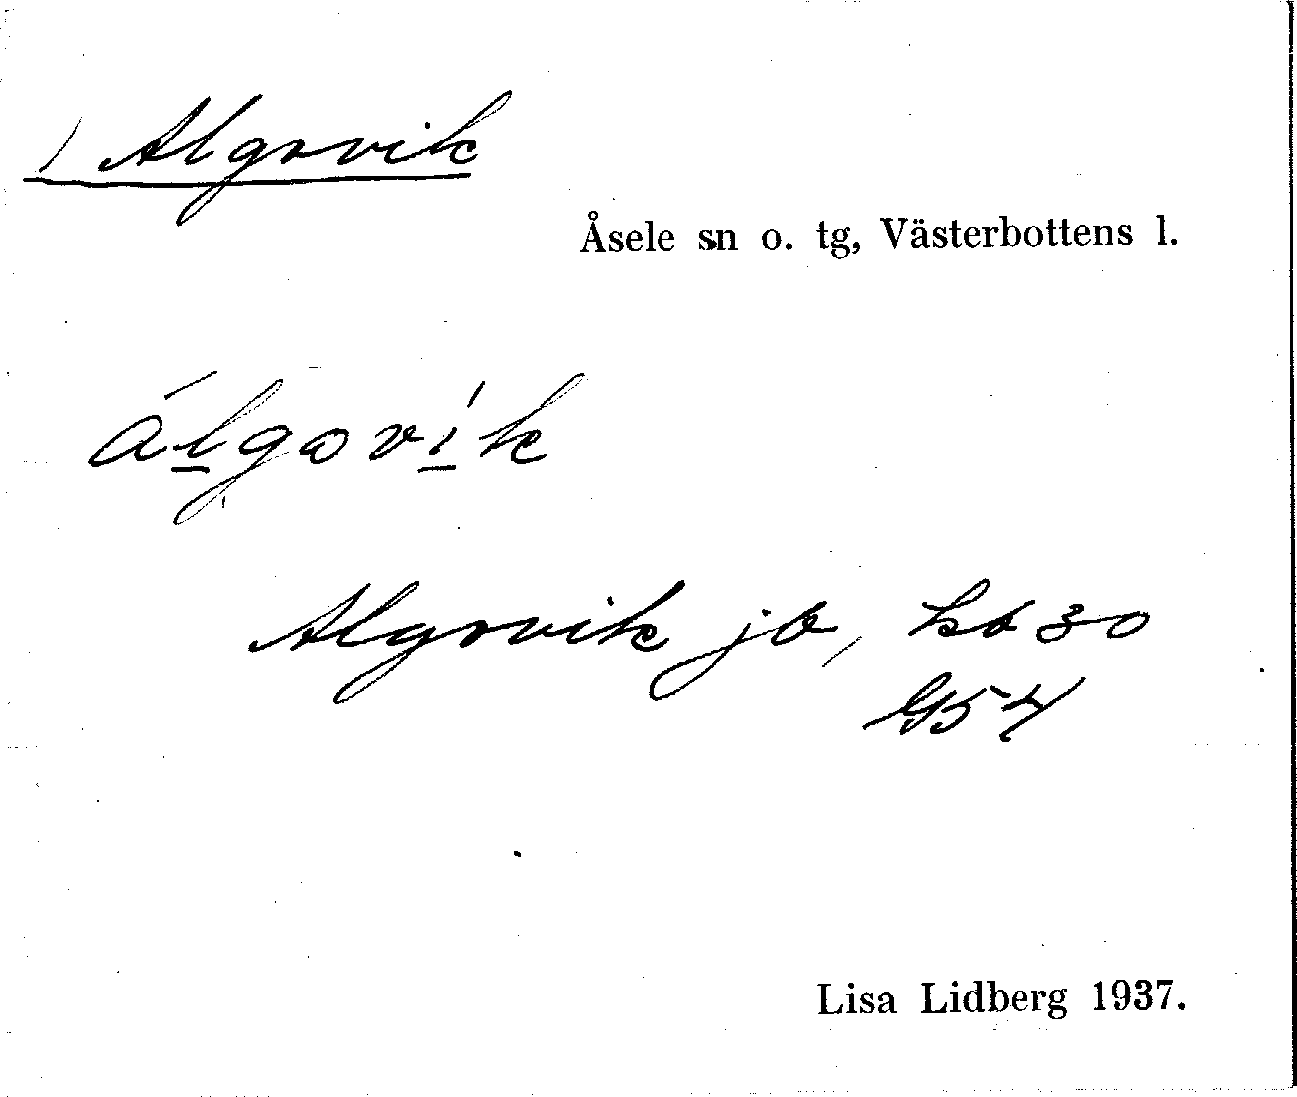 Algovik
Åsele sn o. tg, Västerbottens l.
álgovík
Algovik jb, kb 30
G54
Lisa Lidberg 1937.